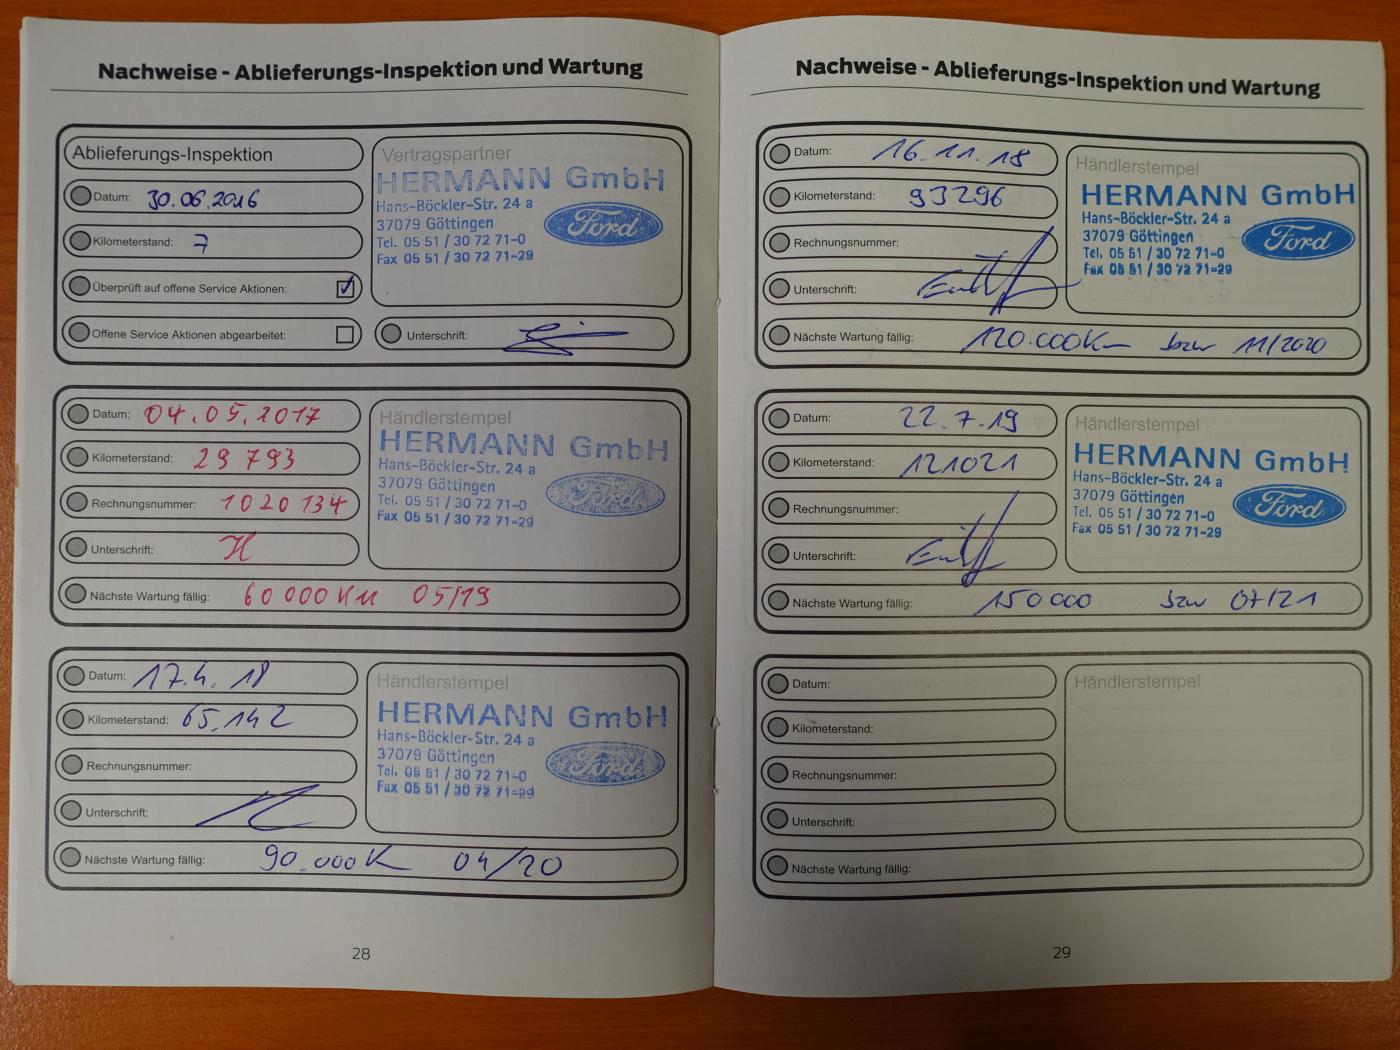 Nachweise - Ablieferungs-Inspektion und Wartung
Ablieferungs-Inspektion
Datum: 30.06.2016
Kilometerstand: 7
Überprüft auf offene Service Aktionen:
Offene Service Aktionen abgearbeitet:
Vertragspartner
HERMANN GmbH
Hans-Böckler-Str. 24 a
37079 Göttingen
Tel. 05 51 / 30 72 71-0
Fax 05 51 / 30 72 71-29
Ford
Unterschrift:
Datum: 04.05.2017
Kilometerstand: 29 793
Rechnungsnummer: 1020134
Unterschrift:
Nächste Wartung fällig: 60 000 KM 05/19
Händlerstempel
HERMANN GmbH
Hans-Böckler-Str. 24 a
37079 Göttingen
Tel. 05 51 / 30 72 71-0
Fax 05 51 / 30 72 71-29
Ford
Datum: 17.4.18
Kilometerstand: 65.142
Rechnungsnummer:
Unterschrift:
Nächste Wartung fällig: 90.000K 04/20
Händlerstempel
HERMANN GmbH
Hans-Böckler-Str. 24 a
37079 Göttingen
Tel. 05 51 / 30 72 71-0
Fax 05 51 / 30 72 71-29
Ford
28
Nachweise - Ablieferungs-Inspektion und Wartung
Datum: 16.11.18
Kilometerstand: 93296
Rechnungsnummer:
Unterschrift:
Nächste Wartung fällig: 120.000K bzw 11/2020
Händlerstempel
HERMANN GmbH
Hans-Böckler-Str. 24 a
37079 Göttingen
Tel. 05 51 / 30 72 71-0
Fax 05 51 / 30 72 71-29
Ford
Datum: 22.7.19
Kilometerstand: 121021
Rechnungsnummer:
Unterschrift:
Nächste Wartung fällig: 150 000 bzw 07/21
Händlerstempel
HERMANN GmbH
Hans-Böckler-Str. 24 a
37079 Göttingen
Tel. 05 51 / 30 72 71-0
Fax 05 51 / 30 72 71-29
Ford
Datum:
Kilometerstand:
Rechnungsnummer:
Unterschrift:
Nächste Wartung fällig:
Händlerstempel
29